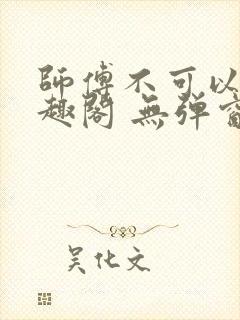 師傅不可以
趣閣 無弹窗
吴化文